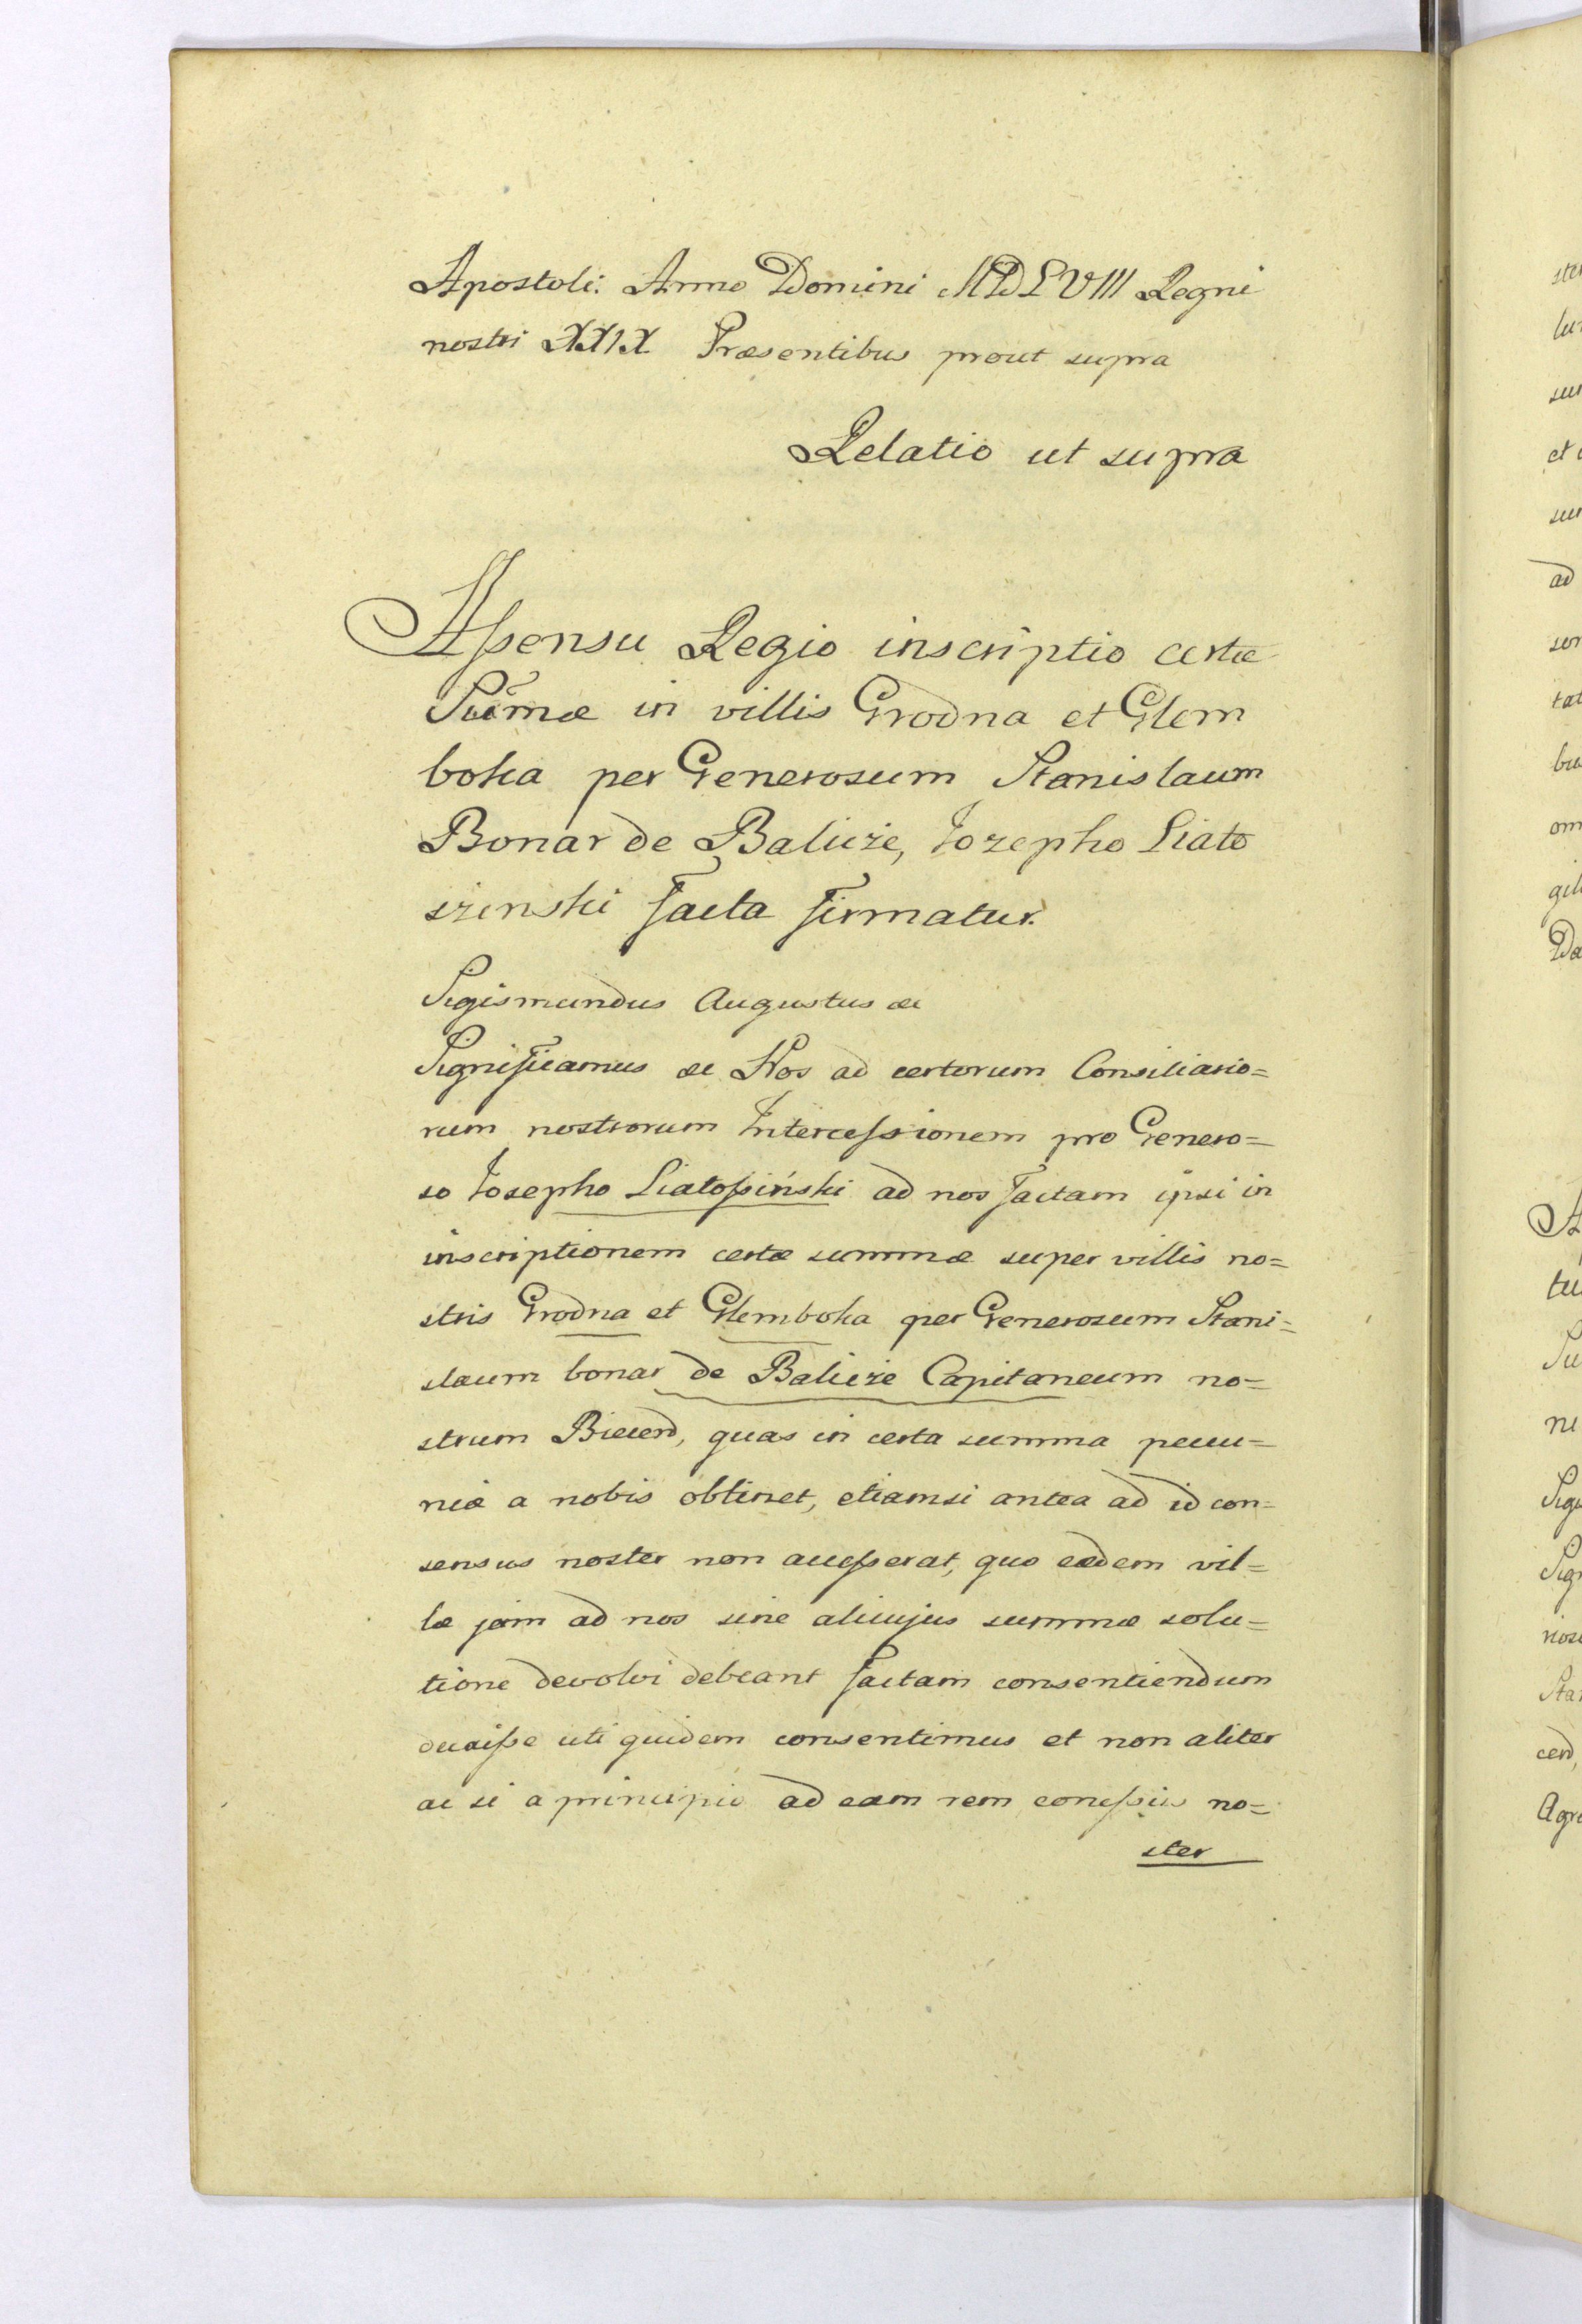 Apostoli. Anno Domini MDLVIII Regni
nostri XXIX Præsentibus prout supra
Relatio ut supra
Aſsensu Regio inscriptio certæ
Sum̃æ in villis Grodna et Glem
boka per Generosum Stanislaum
Bonar de Balicze, Jozepho Liato
szinski facta firmatur.
Sigismundus Augustus &c
Significamus &c Nos ad certorum Consiliario=
rum nostrorum Interceſsionem pro Genero=
so Josepho Liatoſsiński ad nos factam ipsi in
inscriptionem certæ summæ super villis no=
stris Grodna et Glemboka per Generosum Stani=
slaum bonar de Balicze Capitaneum no=
strum Biecen, quas in certa summa pecu=
niæ a nobis obtinet, etiamsi antea ad id con=
sensus noster non acceſserat, quo eædem vil=
læ jam ad nos sine alicujus summæ solu=
tione devolvi debeant factam consentiendum
duxiſse uti quidem consentimus et non aliter
ac si a principio ad eam rem no=
ster
ad
Agr